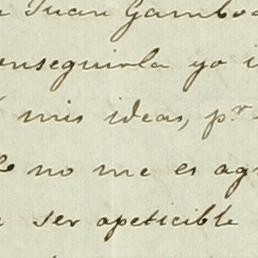 Juan Gambo
onseguirla yo i
mis ideas, pr
no me es ag
ser apeticible